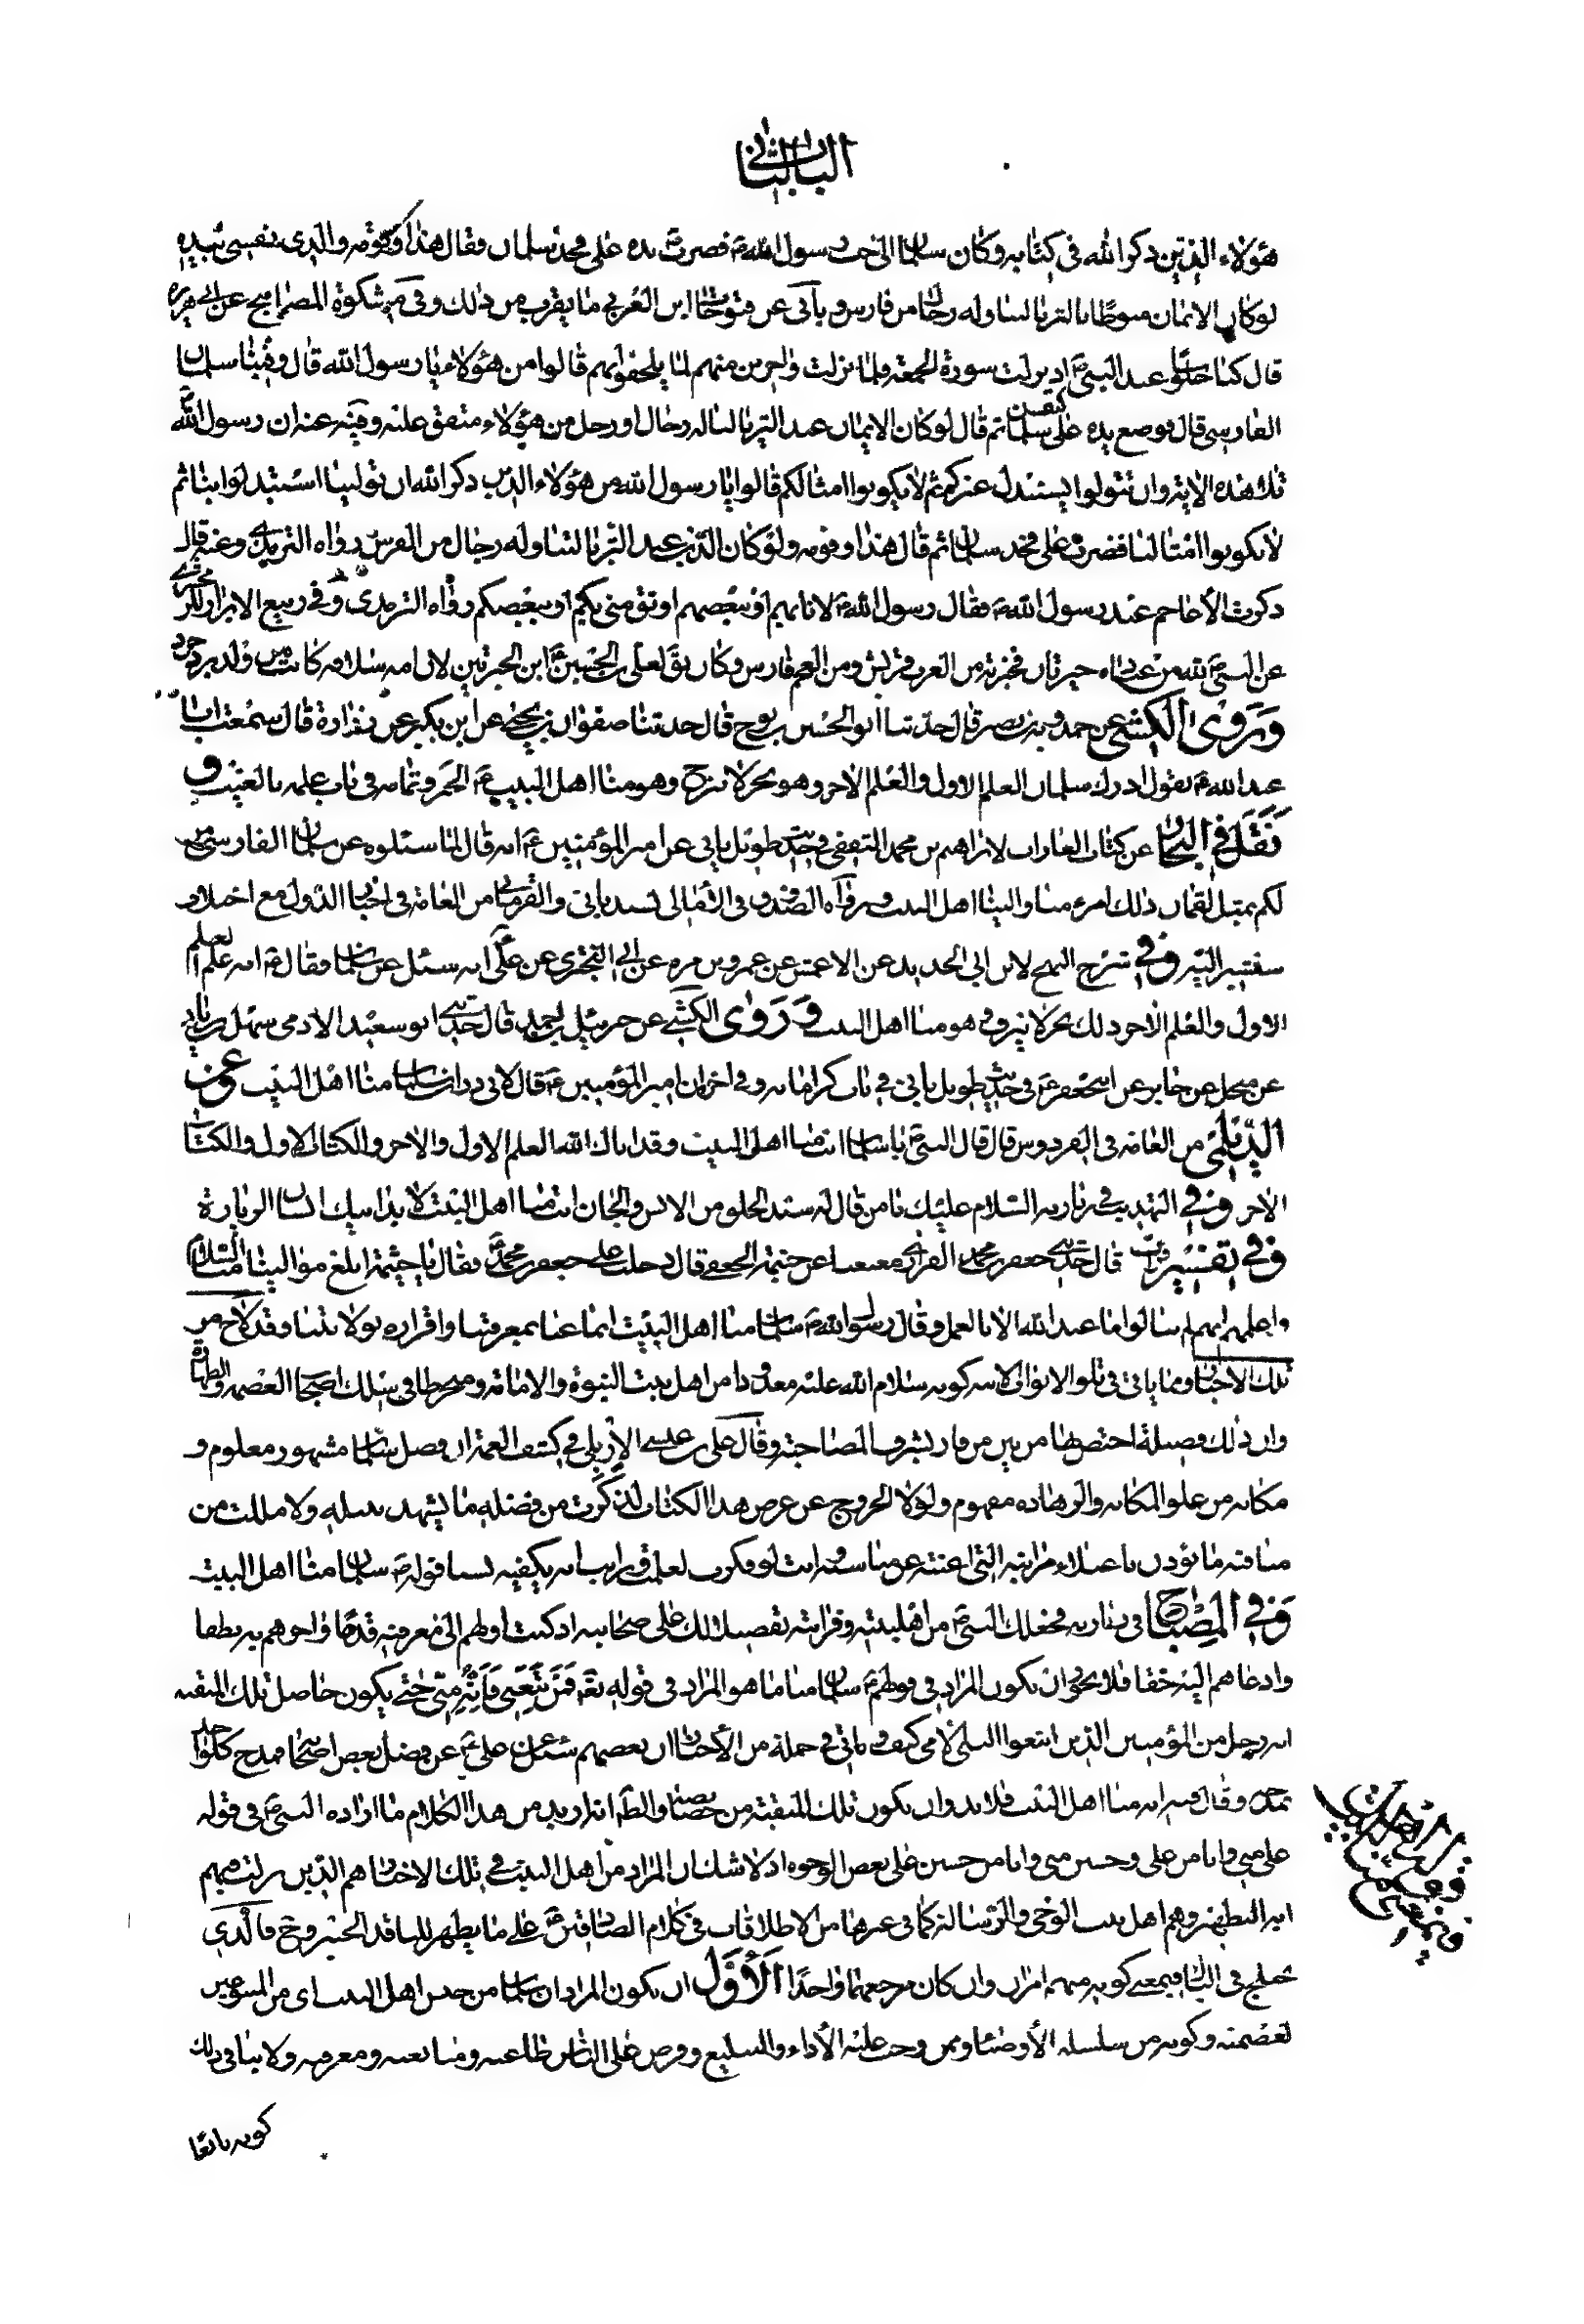 الباب الثاني
هؤلاء الذين ذكر الله في كتابه وكان سلمان الى جنب رسول الله ص فضرب يده على فخذ سلمان وقال هذا وقومه والذي نفسي بيده
لو كان الايمان منوطا بالثريا لتناوله رجال من فارس وياتى عن فتوحات ابن العربي ما يقرب من ذلك وفي مشكوة المصابيح عن ابي هريرة
قال كنا جلوسا عند النبي ص اذ نزلت سورة الجمعة فلما نزلت واخرين منهم لما يلحقوا بهم قالوا من هؤلاء يا رسول الله قال وفينا سلمان
الفارسي قال فوضع يده على سلمان ثم قال لو كان الايمان عند الثريا لناله رجال او رجل من هؤلاء متفق عليه وفيه عنه ان رسول الله ص
تلا هذه الاية وان تتولوا يستبدل غيركم ثم لا يكونوا امثالكم قالوا يا رسول الله من هؤلاء الذين ذكر الله ان تولينا استبدلوا بنا ثم
لا يكونوا امثالنا فضرب على فخذ سلمان ثم قال هذا وقومه ولو كان الدين عند الثريا لتناوله رجال من الفرس رواه الترمذي وعنه قال
ذكرت الاعاجم عند رسول الله ص فقال رسول الله ص لانا بهم او ببعضهم اوثق مني بكم او ببعضكم رواه الترمذي وفي ربيع الابرار للزمخشري
عن النبي ص لله من عباده خيرتان فخيرته من العرب قريش ومن العجم فارس وكان يقال لعلي بن الحسين ع ابن الخيرتين لان امه سلافة كانت من ولد يزدجرد
وروى الكشي عن حمدويه بن نصير قال حدثنا ابو الحسين بن نوح قال حدثنا صفوان بن يحيى عن ابن بكير عن زرارة قال سمعت ابا
عبد الله ع يقول ادرك سلمان العلم الاول والعلم الاخر وهو بحر لا ينزح وهو منا اهل البيت ع الخبر وتمامه في باب علمه بالغيب و
نقل في البحار عن كتاب الغارات لابراهيم بن محمد الثقفي في حديث طويل ياتي عن امير المؤمنين ع انه قال لما سئلوه عن سلمان الفارسي من
لكم بمثل لقمان ذلك امرء منا والينا اهل البيت ورواه الصدوق في الامالي بسند ياتي والقرماني من العامة في اخبار الدول مع اختلاف
سنشير اليه وفي شرح النهج لابن ابي الحديد عن الاعمش عن عمرو بن مرة عن ابي البختري عن علي ع انه سئل عن سلمان فقال ع انه علم العلم
الاول والعلم الاخر ذلك بحر لا ينزف هو منا اهل البيت وروى الكشي عن جبرئيل بن احمد قال حدثني ابو سعيد الادمي سهل بن زياد
عن منخل عن جابر عن ابي جعفر ع في حديث طويل ياتي في باب كراماته وفي اخره ان امير المؤمنين ع قال لابي ذر ان سلمان منا اهل البيت وعن
الديلمي من العامة في الفردوس قال قال النبي ص يا سلمان انت منا اهل البيت وقد اتاك الله العلم الاول والاخر والكتاب الاول والكتاب
الاخر وفي التهذيب في زيارته السلام عليك يا من قال له سيد الخلق من الانس والجان انت منا اهل البيت لا يدانيك انسان الزيارة
وفي تفسير فرات قال حدثني جعفر بن محمد الفزاري معنعنا عن خيثمة الجعفي قال دخلت على جعفر بن محمد ع فقال يا خيثمة ابلغ موالينا منا السلام
واعلمهم انهم لم ينالوا ما عند الله الا بالعمل وقال رسول الله ص سلمان منا اهل البيت انما عنا بمعرفتنا واقراره بولايتنا وقد لاح من
تلك الاخبار ومما ياتي في تلو الابواب الاتية كونه سلام الله عليه معدودا من اهل بيت النبوة والامامة ومنخرطا في سلك اصحاب العصمة والطهارة
وان ذلك فضيلة اختص بها من بين من فاز بشرف المصاحبة وقال علي بن عيسى الاربلي في كشف الغمة ان فضل سلمان مشهور معلوم و
مكانه من علو المكانة والزهادة مفهوم ولولا الخروج عن غرض هذا الكتاب لذكرت من فضله ما يشهد بنبله ولامللت من
مناقبه ما يؤذن باعتلاء مراتبه التي اغنته عن مناسبه انت لو فكرت لعلمت انه يكفيه نسبا قوله ص سلمان منا اهل البيت
وفي المصباح في زيارته فجعلك النبي ص من اهل بيته وقرابته تفضيلا لك على صحابته اذ كنت اولهم الى معرفته قدما واخوهم به نطقا
وادعاهم اليه حقا فلا يجوز ان يكون المراد في قولهم ع سلمان منا ما هو المراد في قوله تعالى فمن تبعني فانه مني حتى يكون حاصل تلك المنقبة
انه رجل من المؤمنين الذين اتبعوا النبي الامي كيف وياتي في جملة من الاخبار ان بعضهم سئل عن علي ع عن فضل بعض اصحابه فمدح كلا
وقال فيه انه منا اهل البيت فلا بد وان يكون تلك المنقبة من خصائصه والظاهر انه اريد من هذا الكلام ما اراده النبي ص في قوله
علي مني وانا من علي وحسين مني وانا من حسين على بعض الوجوه اذ لا شك ان المراد من اهل البيت في تلك الاخبار هم الذين نزلت فيهم
اية التطهير وهم اهل بيت الوحي والرسالة كما في غيرها من الاطلاقات في كلام الصادقين ع على ما يظهر للناقد الخبير وح فالذي
يختلج في البال في معنى كونه منهم امران وان كان مرجعهما واحدا الاول ان يكون المراد ان سلمان من جنس اهل البيت اي من
لعصمته وكونه من سلسلة الاوصياء وممن وجب عليه الاداء والتبليغ وفرض على الناس طاعته ومتابعته ومعرفته ولا ينافي ذلك
كونه تابعا